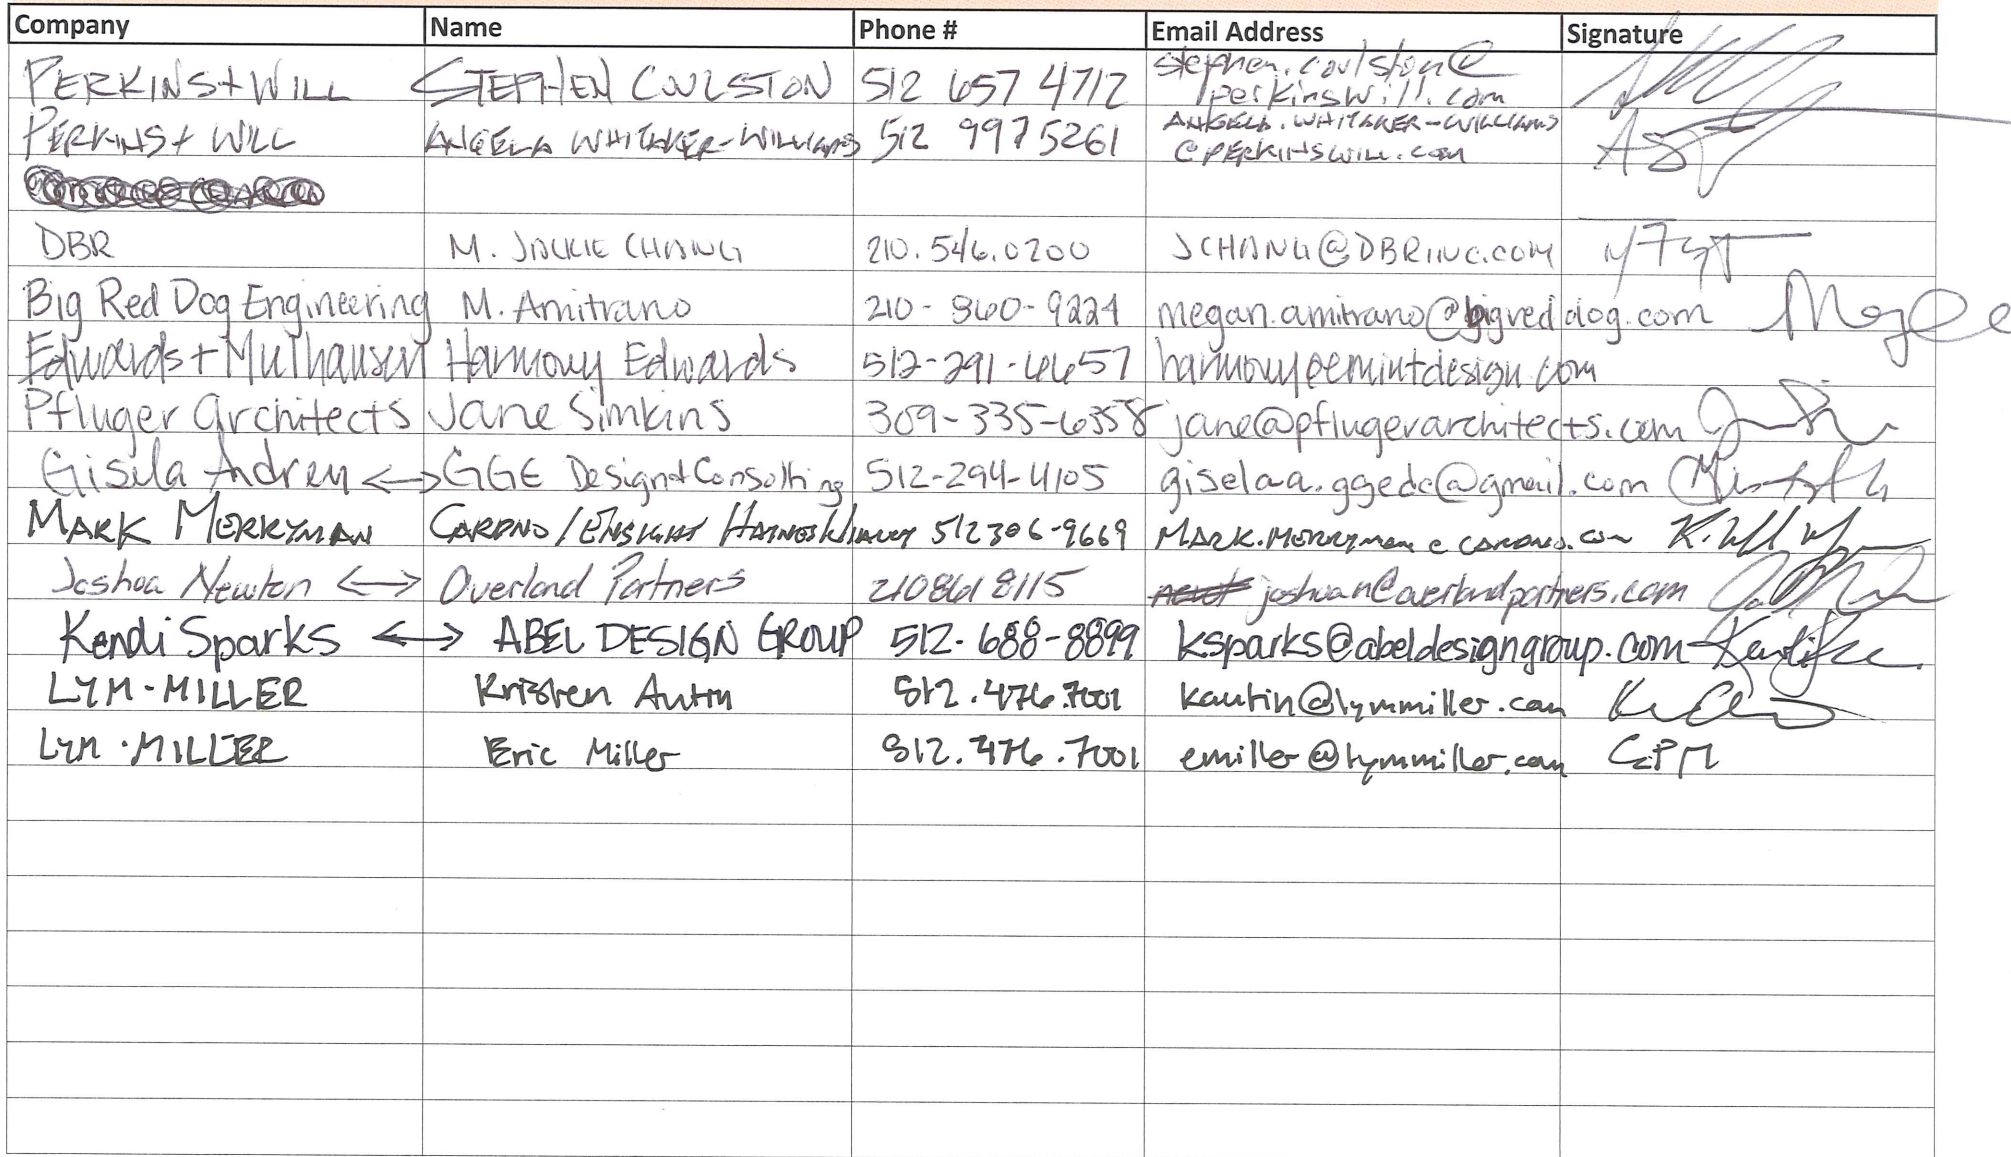 Company Name Phone # Email Address Signature
PERKINS+WILL STEPHEN COULSTON 512 657 4712 stephen.coulston@
perkinswill.com
PERKINS+ WILL ANGELA WHITAKER-WILLIAMS 512 997 5261 ANGELA.WHITAKER-WILLIAMS
@PERKINSWILL.COM
DBR M. JACKIE CHANG 210.546.0200 JCHANG@DBRINC.COM
Big Red Dog Engineering M. Amitrano 210-860-9224 megan.amitrano@bigreddog.com
Edwards+Mulhausen Harmony Edwards 512-291-6657 harmony@emintdesign.com
Pfluger Architects Jane Simkins 309-335-6358 jane@pflugerarchitects.com
Gisela Andreu <-> GGE Design+Consulting 512-294-4105 giselaa.ggedc@gmail.com
MARK MERRYMAN CARDNO/ENSIGHT HAYNES WHALEY 512 306-9669 MARK.MERRYMAN@CARDNO.COM
Joshua Newton <-> Overland Partners 2108618115 joshuan@overlandpartners.com
Kendi Sparks <-> ABEL DESIGN GROUP 512-688-8899 ksparks@abeldesigngroup.com
LYM·MILLER Kristen Autin 512.476.7001 kautin@lymmiller.com
LYM·MILLER Eric Miller 512.476.7001 emiller@lymmiller.com